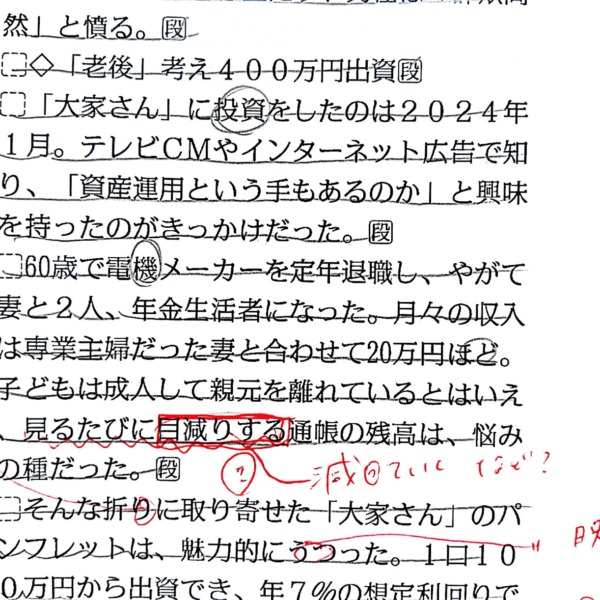 然」と憤る。段
◇「老後」考え４００万円出資段
「大家さん」に投資をしたのは２０２４年
１月。テレビＣＭやインターネット広告で知
り、「資産運用という手もあるのか」と興味
を持ったのがきっかけだった。段
60歳で電機メーカーを定年退職し、やがて
妻と２人、年金生活者になった。月々の収入
は専業主婦だった妻と合わせて20万円ほど。
子どもは成人して親元を離れているとはいえ
、見るたびに目減りする通帳の残高は、悩み
の種だった。段
？
そんな折りに取り寄せた「大家さん」のパ
ンフレットは、魅力的にうつった。１口１０
０万円から出資でき、年７％の想定利回りで